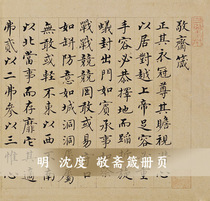 敬齋箴
正其衣冠尊其瞻視
以居對越上帝足容
手容必恭擇地而蹈
蟻封出門如賓承事
戰戰兢兢罔敢或易
如缾防意如城洞洞屬
無敢或輕不東以西
以北當事而存靡它其適
弗貳以二弗參以三惟心
明 沈度 敬斋箴册页